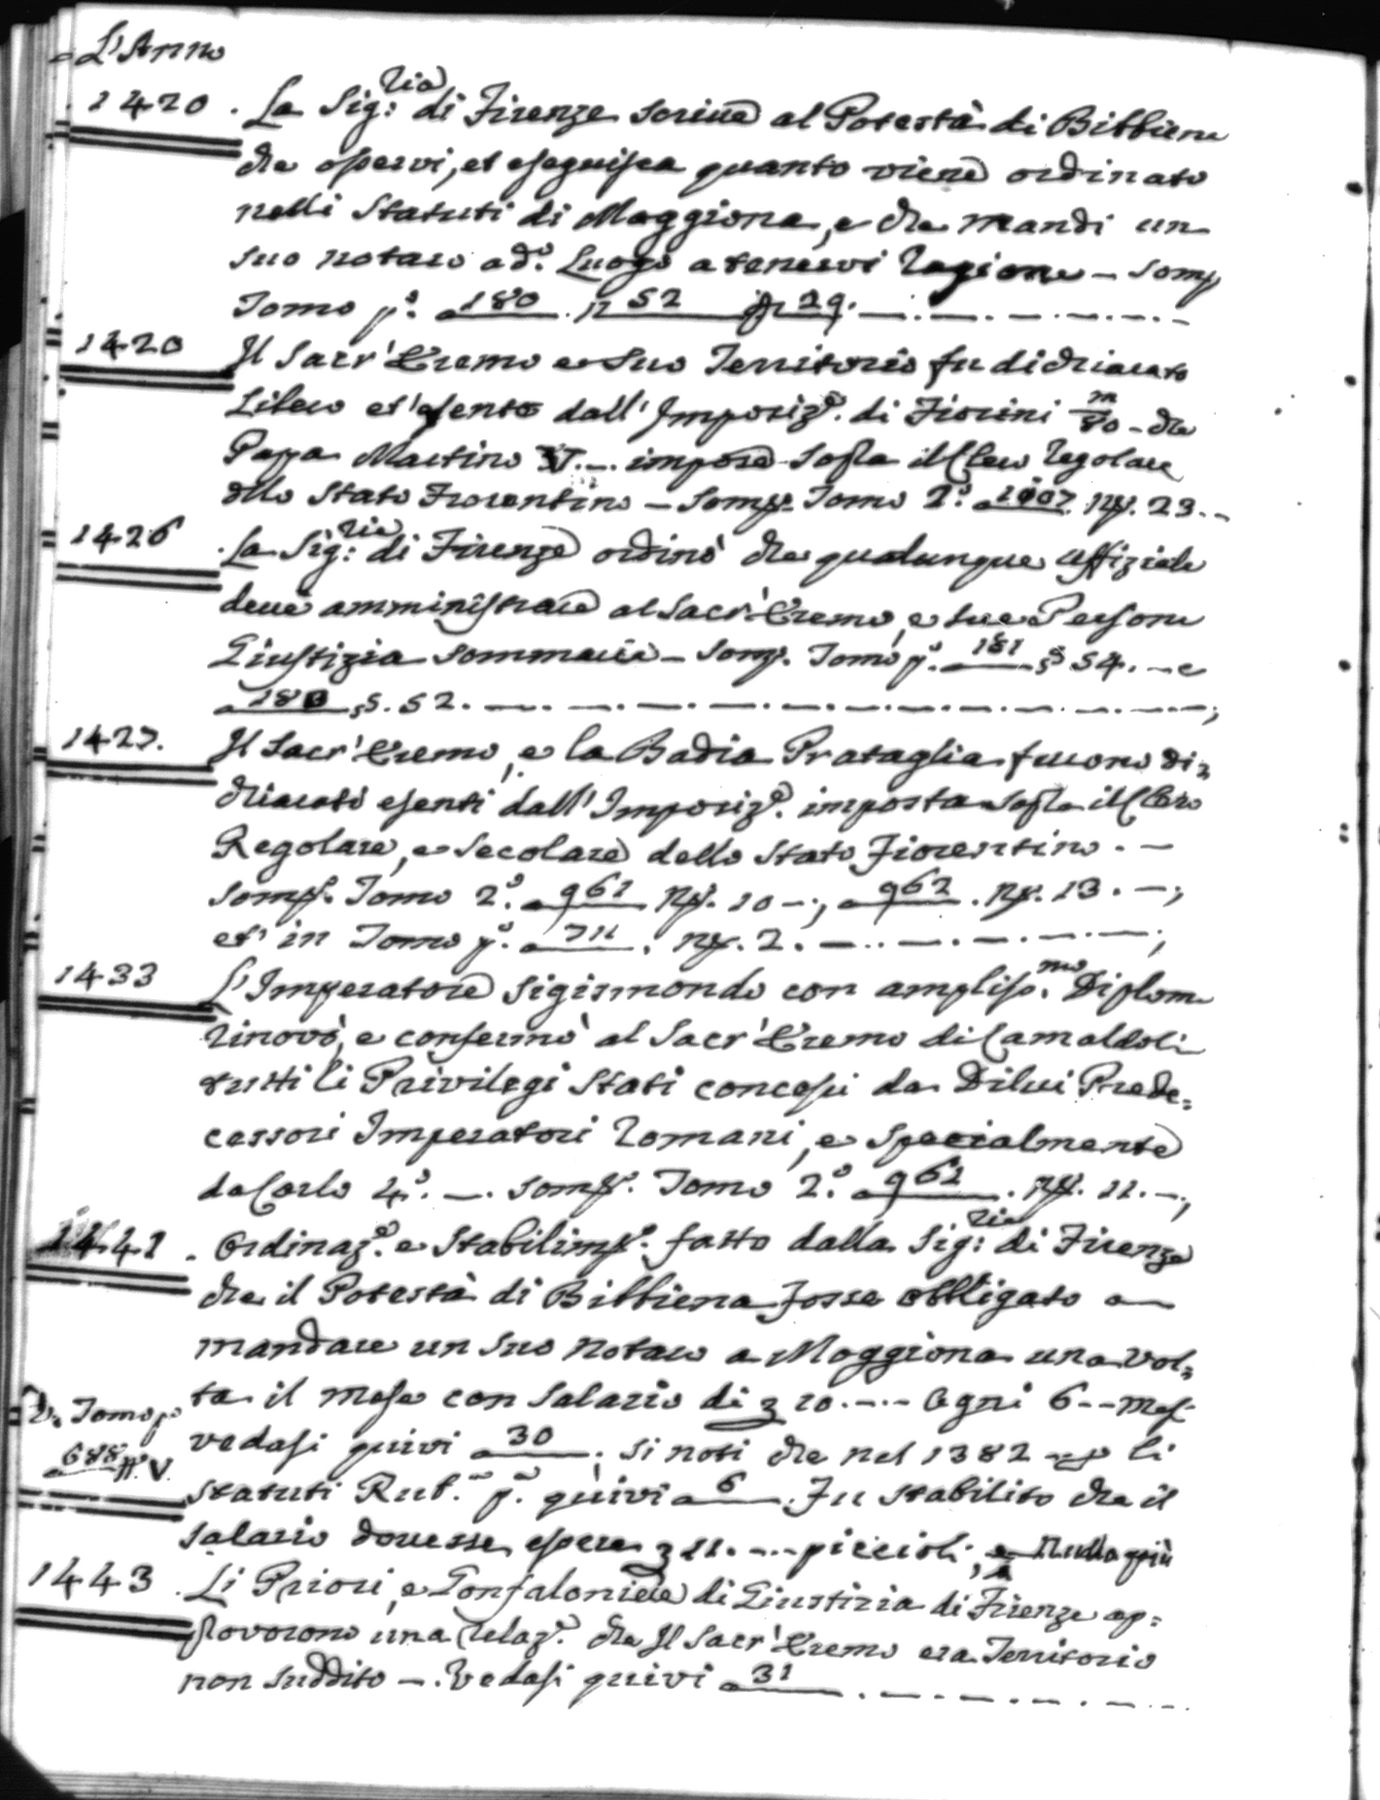 L'Anno
1420. La Sig:ria di Firenze scrive al Potestà di Bibbiena
che osservi, et eseguisca quanto viene ordinato
nelli Statuti di Moggiona, e che mandi un
suo notaro a d.o Luogo a tenervi Ragione – Somm
Tomo p.o a 180. n 52 29.
1420 Il Sacr' Eremo e suo Territorio fu dichiarato
Libero et' esento dall' Imposiz.e di Fiorini m/80 – che
Papa Martino V. – . impose sopra il Clero Regolare
dello Stato Fiorentino – Somm. Tomo 2.o a 1007. 23. –
1426 . La Sig:ria di Firenze ordinò che qualunque Uffiziale
deve amministrare al Sacr' Eremo, e sue Persone
Giustizia sommaria – Somm. Tomo p.o a 181 § 54. – e
a 180 §. 52. –
1427. Il Sacr' Eremo, e la Badia Prataglia furono di=
chiarati esenti dall' Imposiz.e imposta sopra il Clero
Regolare, e Secolare dello Stato Fiorentino. –
Somm. Tomo 2.o a 961 10 –; a 962. 13. –;
et' in Tomo p.o a 711. 2. – ;
1433 L'Imperatore Sigismondo con ampliss.mo Diploma
rinovò, e confermò al Sacr' Eremo di Camaldoli
tutti li Privilegi stati concessi da Dilui Prede=
cessori Imperatori Romani, e specialmente
da Carlo 4.o – . Somm. Tomo 2.o a 962. 11. –;
1441 . Ordinaz.e e Stabilim.to fatto dalla Sig:ria di Firenze
che il Potestà di Bibbiena fosse obbligato a
mandare un suo notaro a Moggiona una vol=
ta il mese con salario di 10. – Ogni 6 – – mesi
V. Tomo p.o
688 V.
vedasi quivi a 30. si noti che nel 1382 li
statuti Rub. p.a quivi a 6. Fu stabilito che il
salario dovesse essere 11. – piccioli, e nulla più
1443 . Li Priori, e Gonfaloniere di Giustizia di Firenze ap=
provorono una Relaz.e che Il Sacr' Eremo era Territorio
non suddito – . Vedasi quivi a 31.